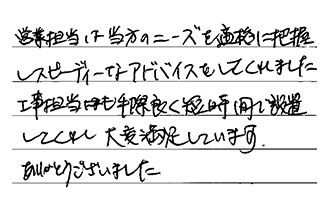 営業担当は当方のニーズを適格に把握
しスピーディーなアドバイスをしてくれました
工事担当の方も手際良く短時間で設置
してくれ大変満足しています.
ありがとうございました